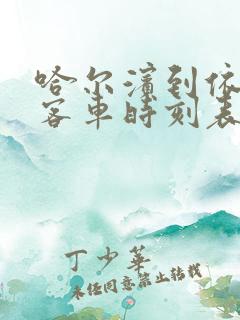 哈尔滨到依
客车时刻表
丁少华
未经同意禁止转载